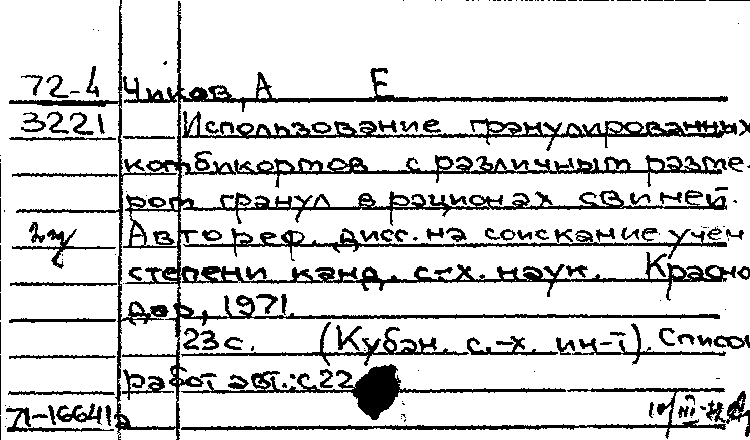 72-4 Чиков, А Е
3221 Использование гранулированных
комбикормов с различным разме-
ром гранул в рационах свиней.
Автореф. дисс. на соискание учен
степени канд. с-х. наук. Красно
дар, 1971.
23 с. (Кубан. с.-х. ин-т). Список
работ авт.: с. 22
71-16641